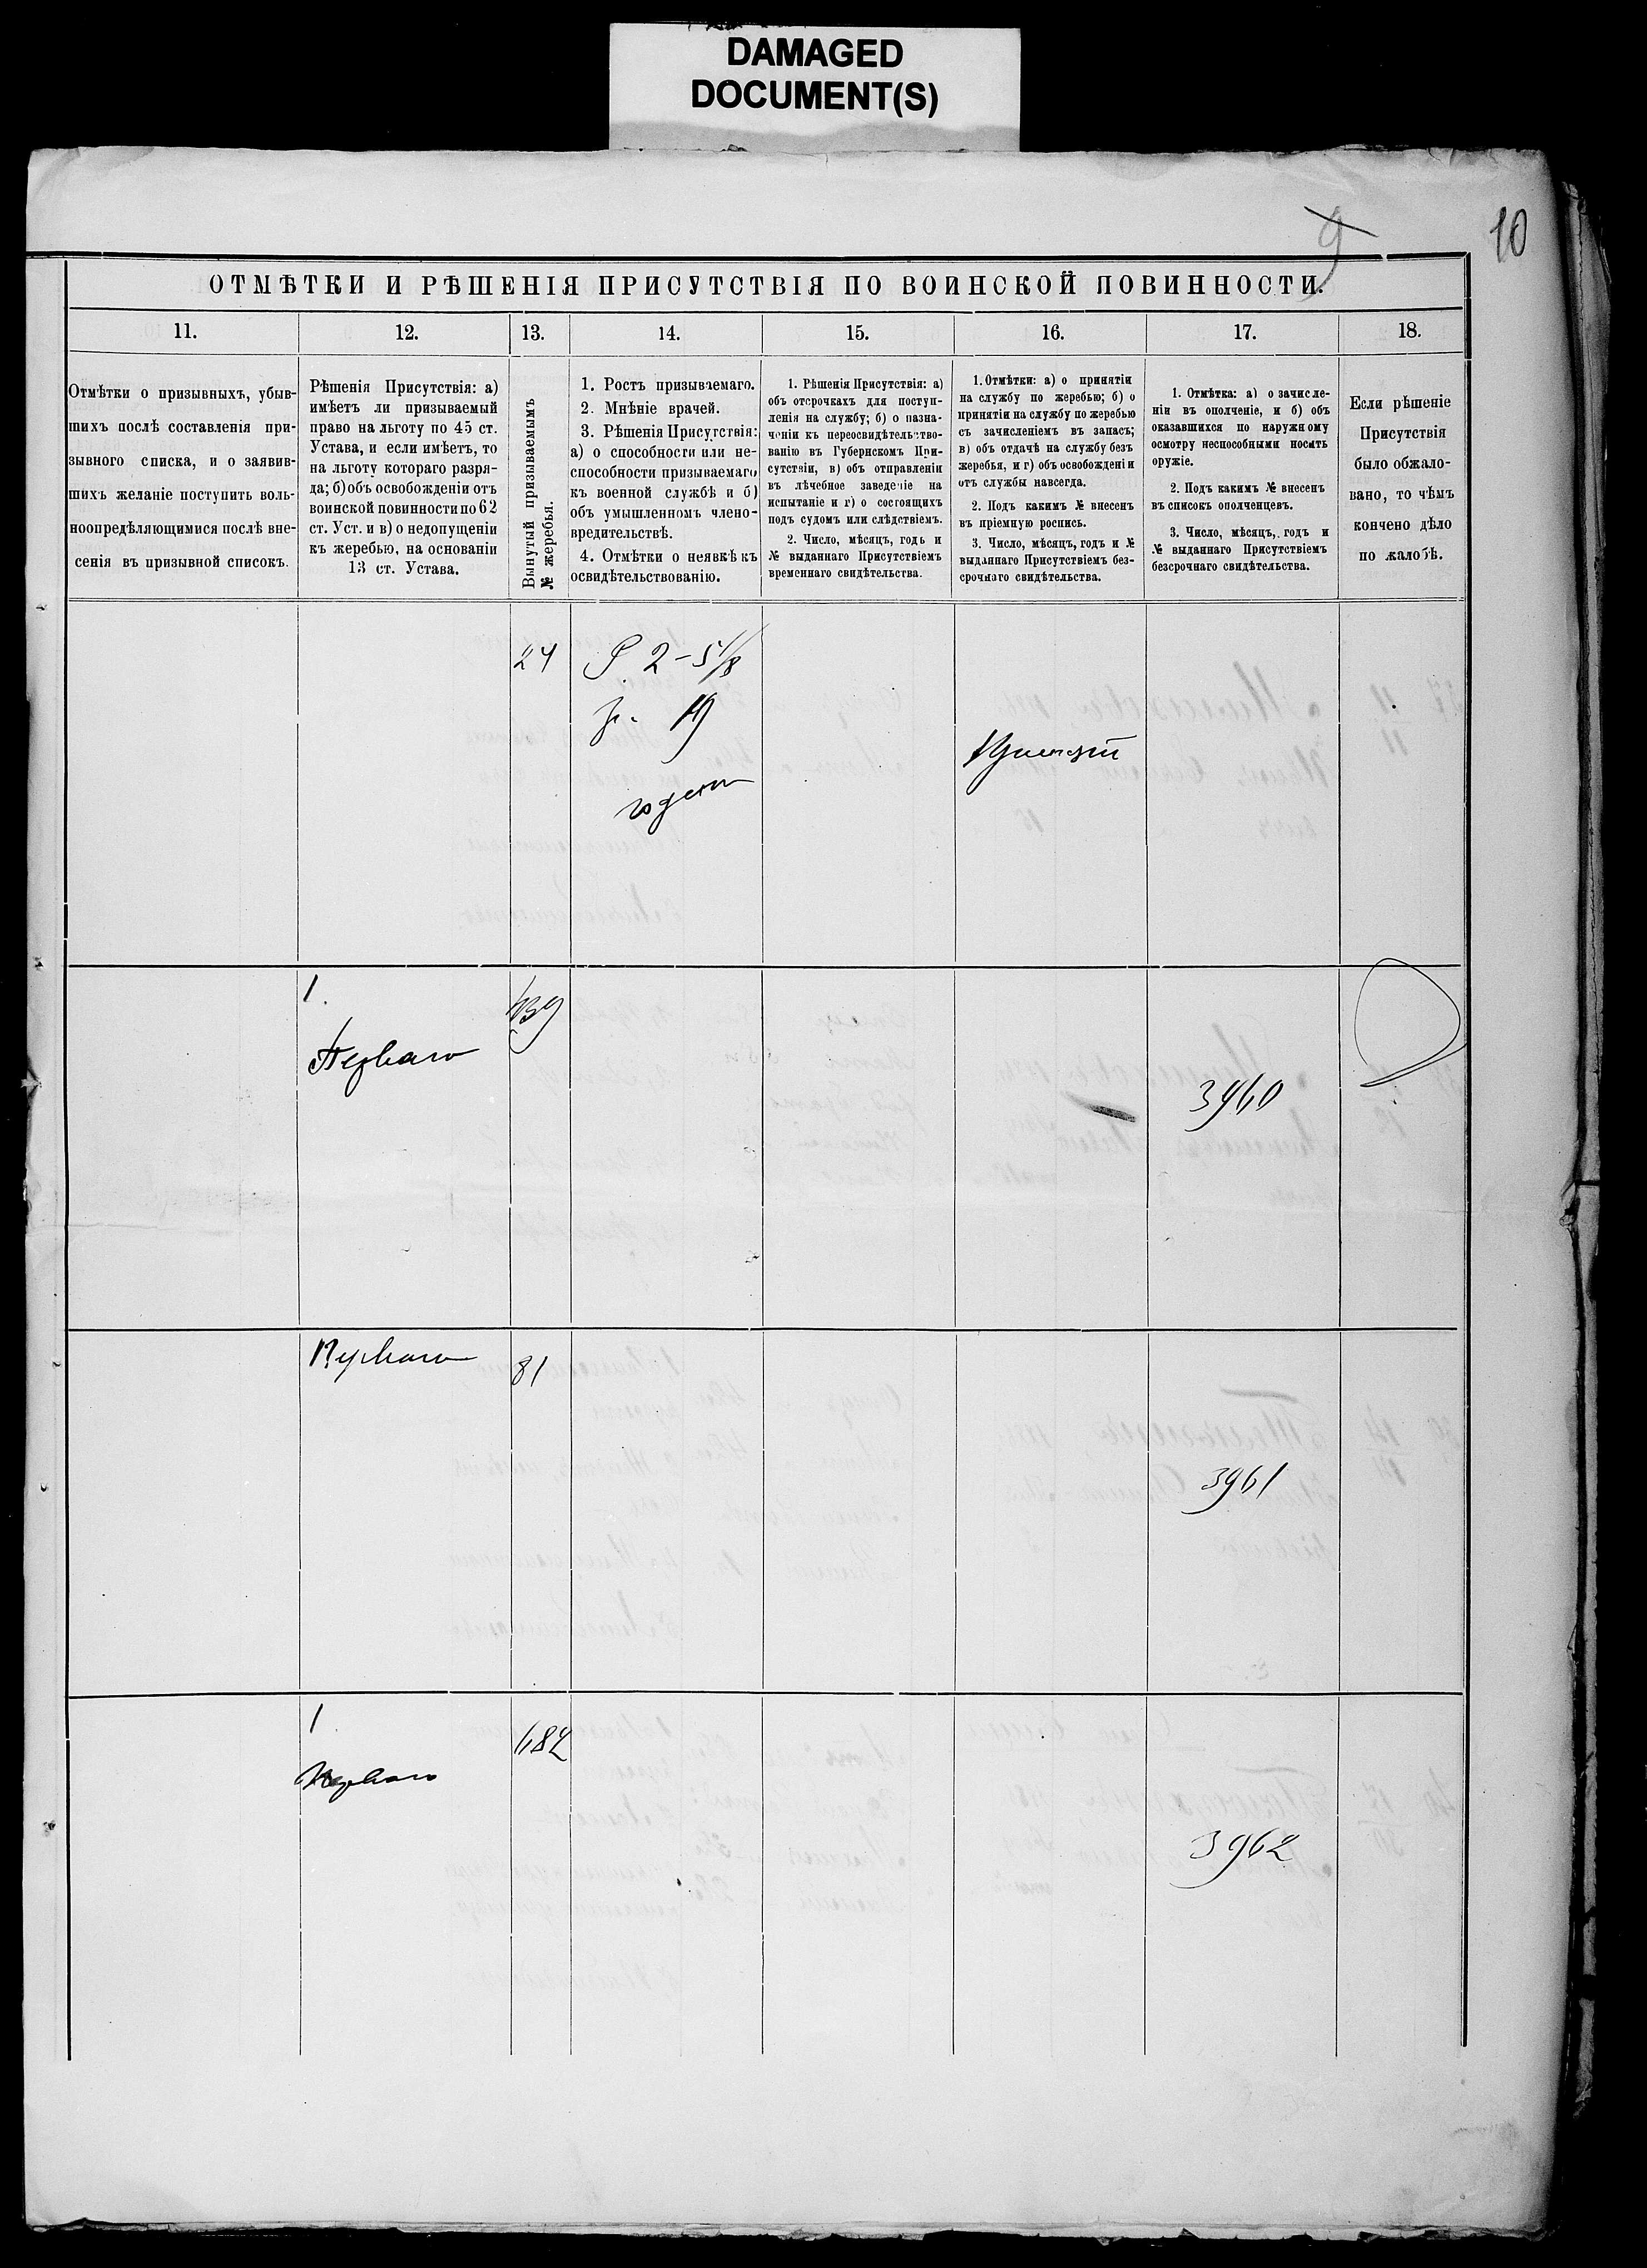 DAMAGED
DOCUMENT(S)
9
10
ОТМѢТКИ И РѢШЕНІЯ ПРИСУТСТВІЯ ПО ВОИНСКОЙ ПОВИННОСТИ.
11.
12.
13.
14.
15.
16.
17.
18.
Отмѣтки о призывныхъ, убыв-
шихъ послѣ составленія при-
зывного списка, и о заявив-
шихъ желаніе поступить воль-
ноопредѣляющимися послѣ вне-
сенія въ призывной списокъ.
Рѣшенія Присутствія: а)
имѣетъ ли призываемый
право на льготу по 45 ст.
Устава, и если имѣетъ, то
на льготу котораго разря-
да; б) объ освобожденіи отъ
воинской повинности по 62
ст. Уст. и в) о недопущеніи
къ жеребью, на основаніи
13 ст. Устава.
Вынутый призываемымъ
№ жеребья.
1. Ростъ призываемаго.
2. Мнѣніе врачей.
3. Рѣшенія Присутствія:
а) о способности или не-
способности призываемаго
къ военной службѣ и б)
объ умышленномъ члено-
вредительствѣ.
4. Отмѣтки о неявкѣ къ
освидѣтельствованію.
1. Рѣшенія Присутствія: а)
объ отсрочкахъ для поступ-
ленія на службу; б) о назна-
ченіи къ переосвидѣтельство-
ванію въ Губернскомъ При-
сутствіи, в) объ отправленіи
въ лѣчебное заведеніе на
испытаніе и г) о состоящихъ
подъ судомъ или слѣдствіемъ.
2. Число, мѣсяцъ, годъ и
№ выданнаго Присутствіемъ
временнаго свидѣтельства.
1. Отмѣтки: а) о принятіи
на службу по жеребью; б) о
принятіи на службу по жеребью
съ зачисленіемъ въ запасъ;
в) объ отдачѣ на службу безъ
жеребья, и г) объ освобожденіи
отъ службы навсегда.
2. Подъ какимъ № внесенъ
въ пріемную роспись.
3. Число, мѣсяцъ, годъ и №
выданнаго Присутствіемъ без-
срочнаго свидѣтельства.
1. Отмѣтка: а) о зачисле-
ніи въ ополченіе, и б) объ
оказавшихся по наружному
осмотру неспособными носить
оружіе.
2. Подъ какимъ № внесенъ
въ списокъ ополченцевъ.
3. Число, мѣсяцъ, годъ и
№ выданнаго Присутствіемъ
безсрочнаго свидѣтельства.
Если рѣшеніе
Присутствія
было обжало-
вано, то чѣмъ
кончено дѣло
по жалобѣ.
24
Р. 2-5/8
19
годенъ
Принятъ
1
Перваго
639
3960
Перваго
81
3961
1
Перваго
682
3962